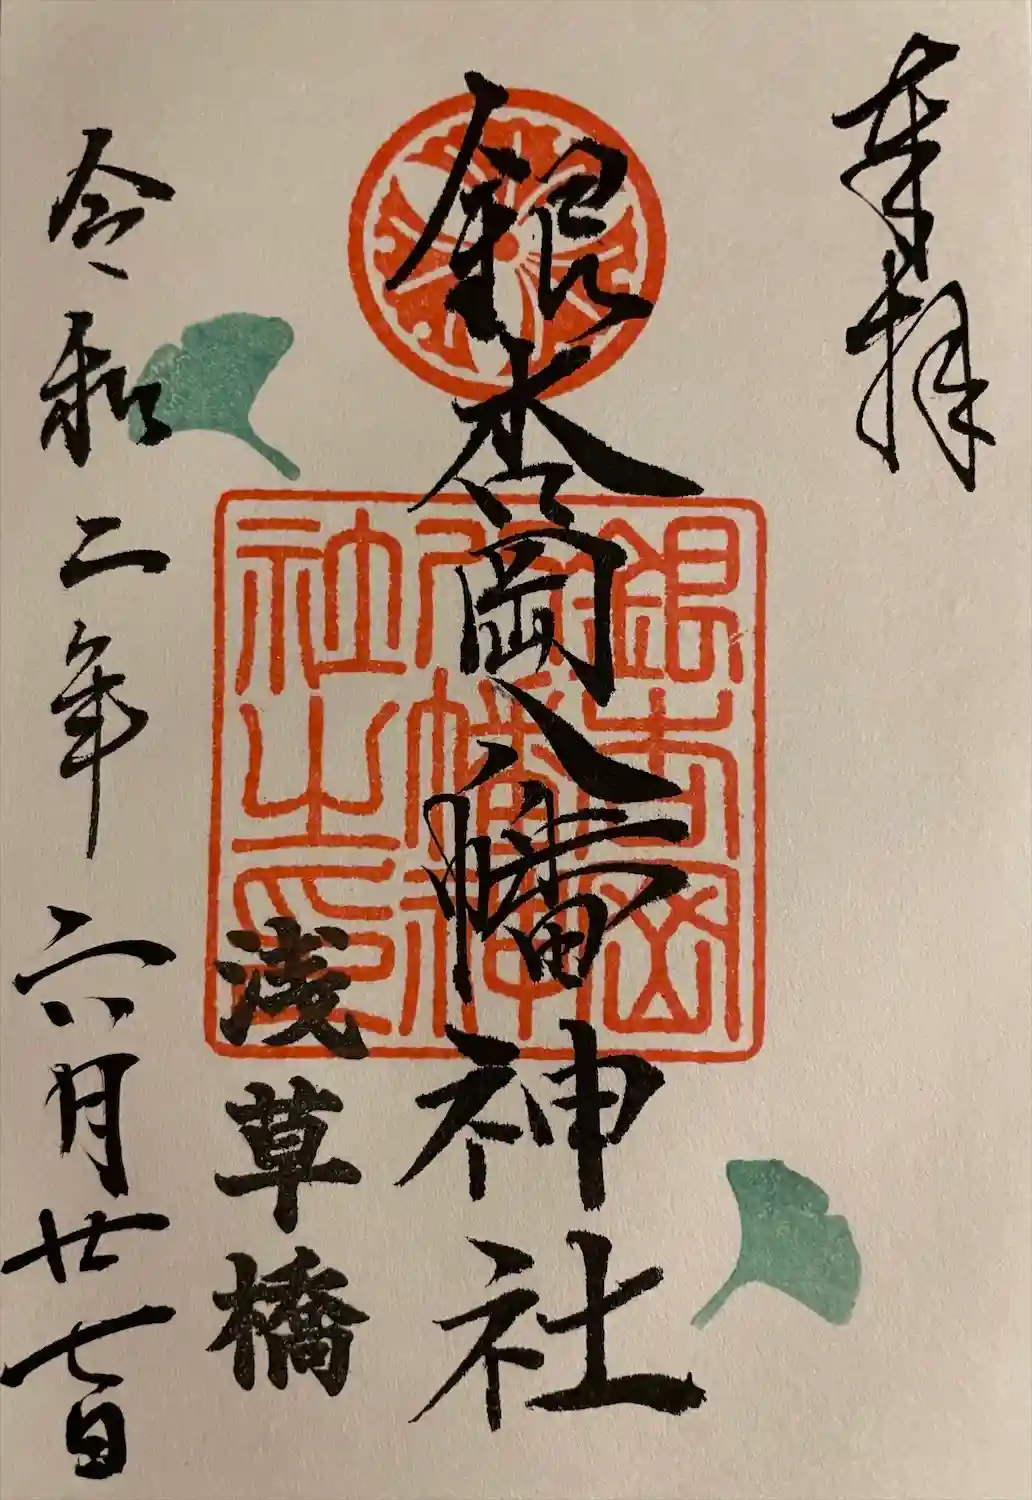 奉拝
銀杏岡八幡神社
銀杏岡
八幡神
社之印
浅草橋
令和二年六月廿七日